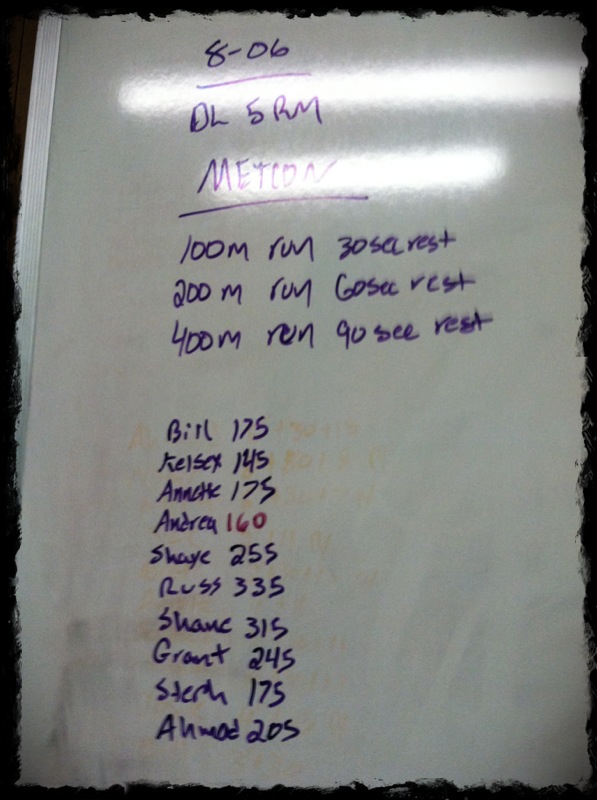 8-06
DL 5RM
METCON
100m run 30sec rest
200m run 60sec rest
400m run 90sec rest
Bill 175
Kelsey 145
Annette 175
Andrea 160
Shaye 255
Russ 335
Shane 315
Grant 245
Steph 175
Ahmad 205